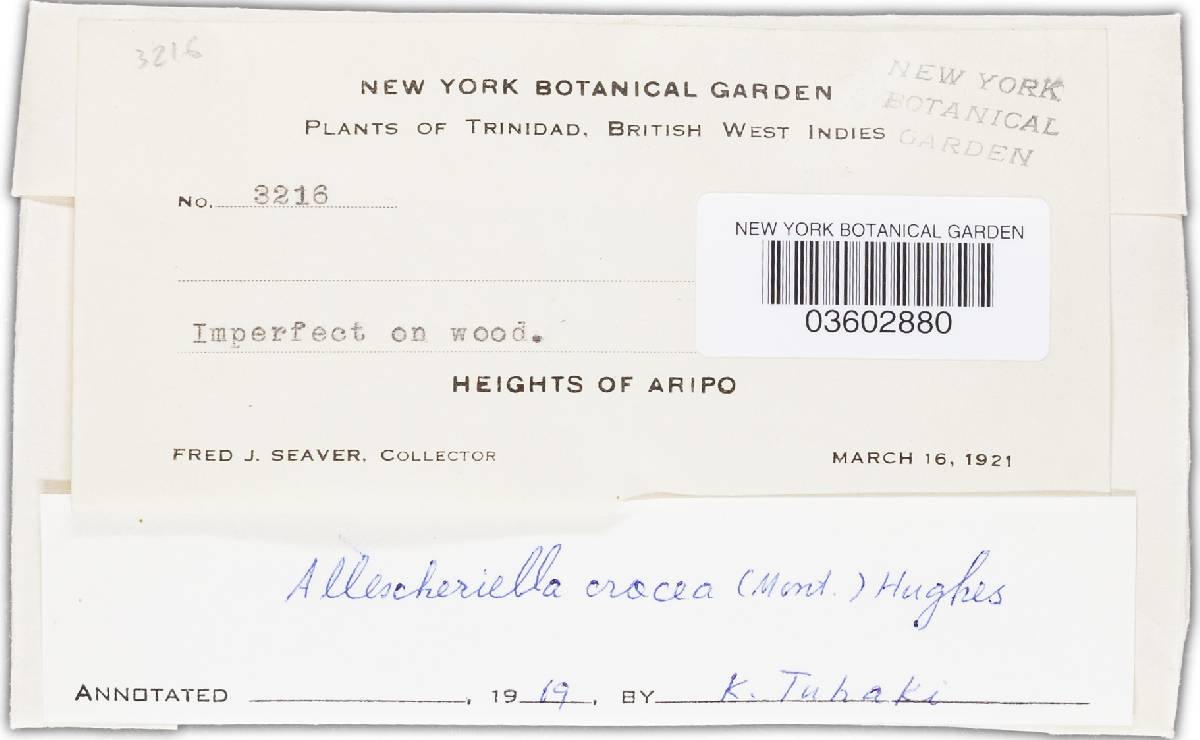 3216
NEW YORK BOTANICAL GARDEN
PLANTS OF TRINIDAD, BRITISH WEST INDIES
NEW YORK
BOTANICAL
GARDEN
No. 3216
NEW YORK BOTANICAL GARDEN
03602880
Imperfect on wood.
HEIGHTS OF ARIPO
FRED J. SEAVER, COLLECTOR MARCH 16, 1921
Allescheriella crocea (Mont.) Hughes
ANNOTATED , 19 19, BY K. Tubaki